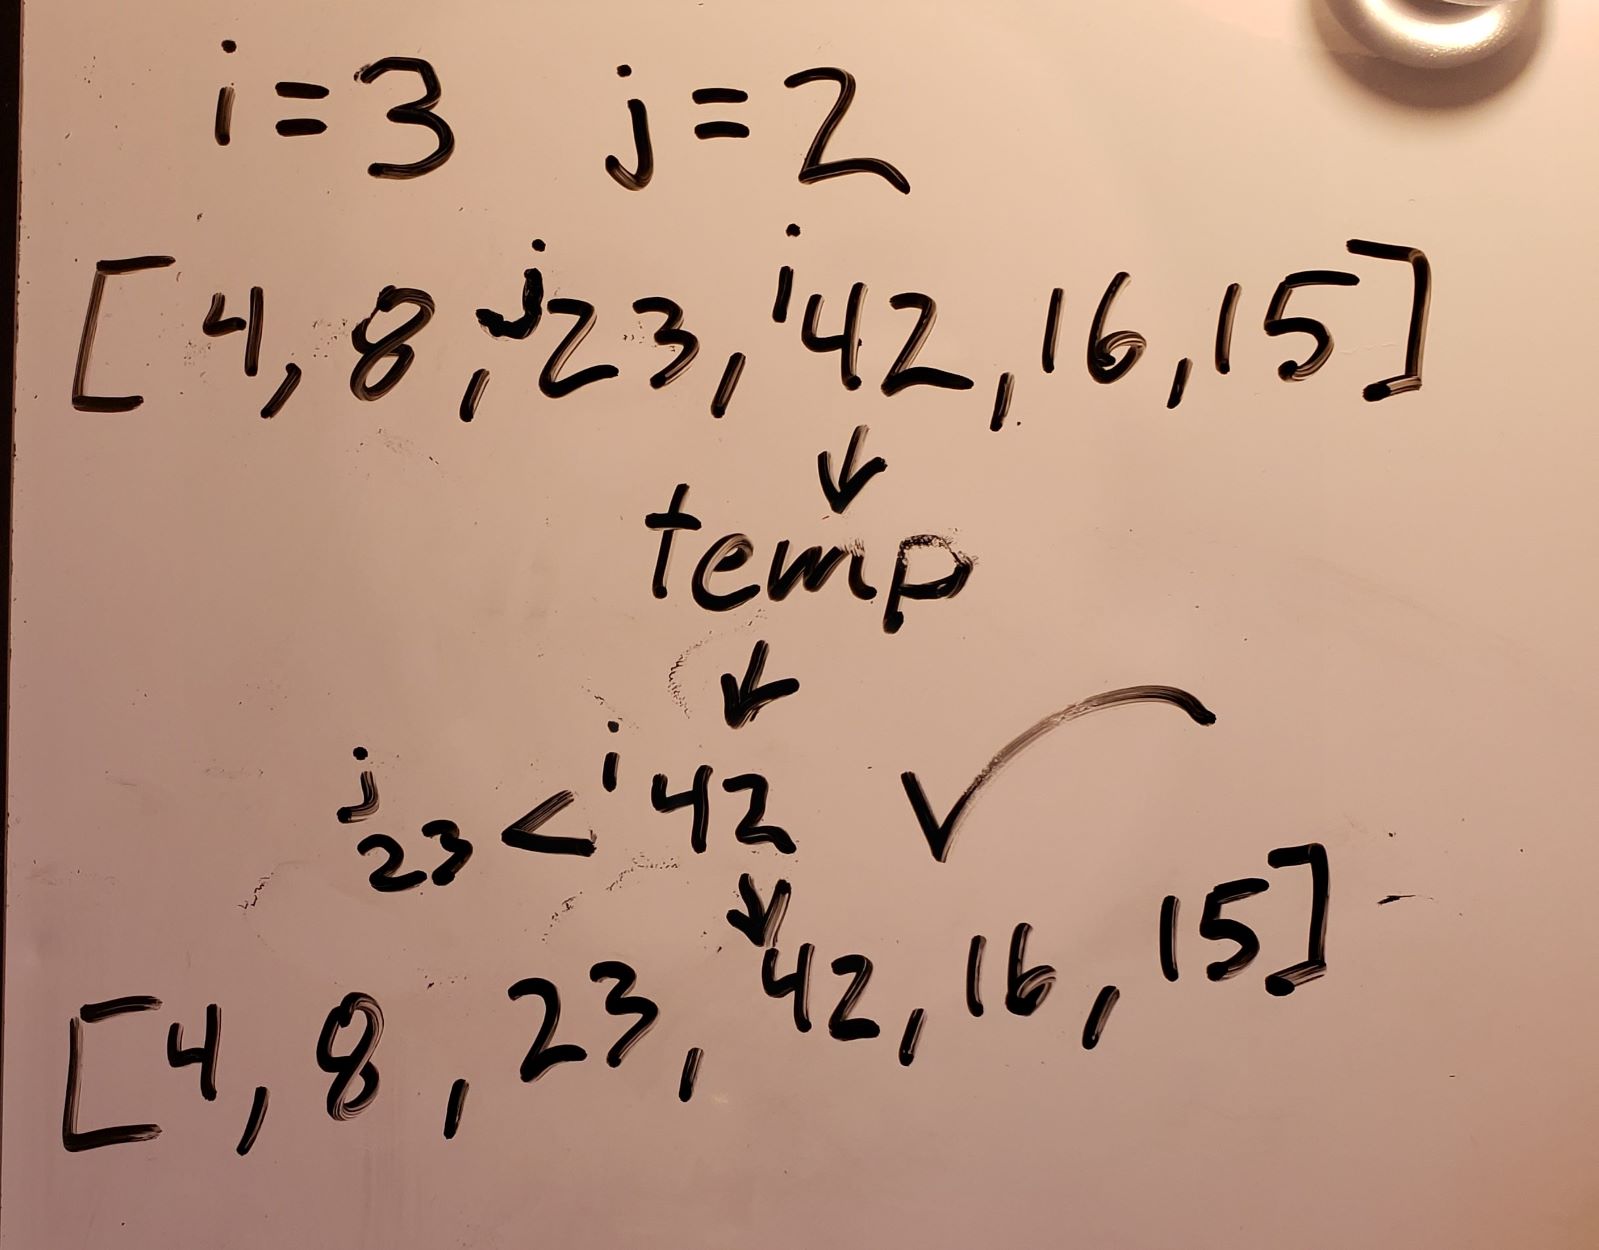 i=3 j=2
[4, 8, j23, i42, 16, 15]
↓
temp
↓
j23 < i42 ✓
↓
[4, 8, 23, 42, 16, 15]